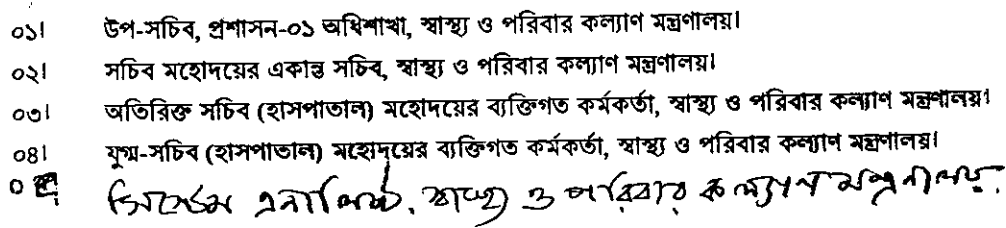 ০১। উপ-সচিব, প্রশাসন-০১ অধিশাখা, স্বাস্থ্য ও পরিবার কল্যাণ মন্ত্রণালয়।
০২। সচিব মহোদয়ের একান্ত সচিব, স্বাস্থ্য ও পরিবার কল্যাণ মন্ত্রণালয়।
০৩। অতিরিক্ত সচিব (হাসপাতাল) মহোদয়ের ব্যক্তিগত কর্মকর্তা, স্বাস্থ্য ও পরিবার কল্যাণ মন্ত্রণালয়।
০৪। যুগ্ম-সচিব (হাসপাতাল) মহোদয়ের ব্যক্তিগত কর্মকর্তা, স্বাস্থ্য ও পরিবার কল্যাণ মন্ত্রণালয়।
সিস্টেম এনালিস্ট, স্বাস্থ্য ও পরিবার কল্যাণ মন্ত্রনালয়.